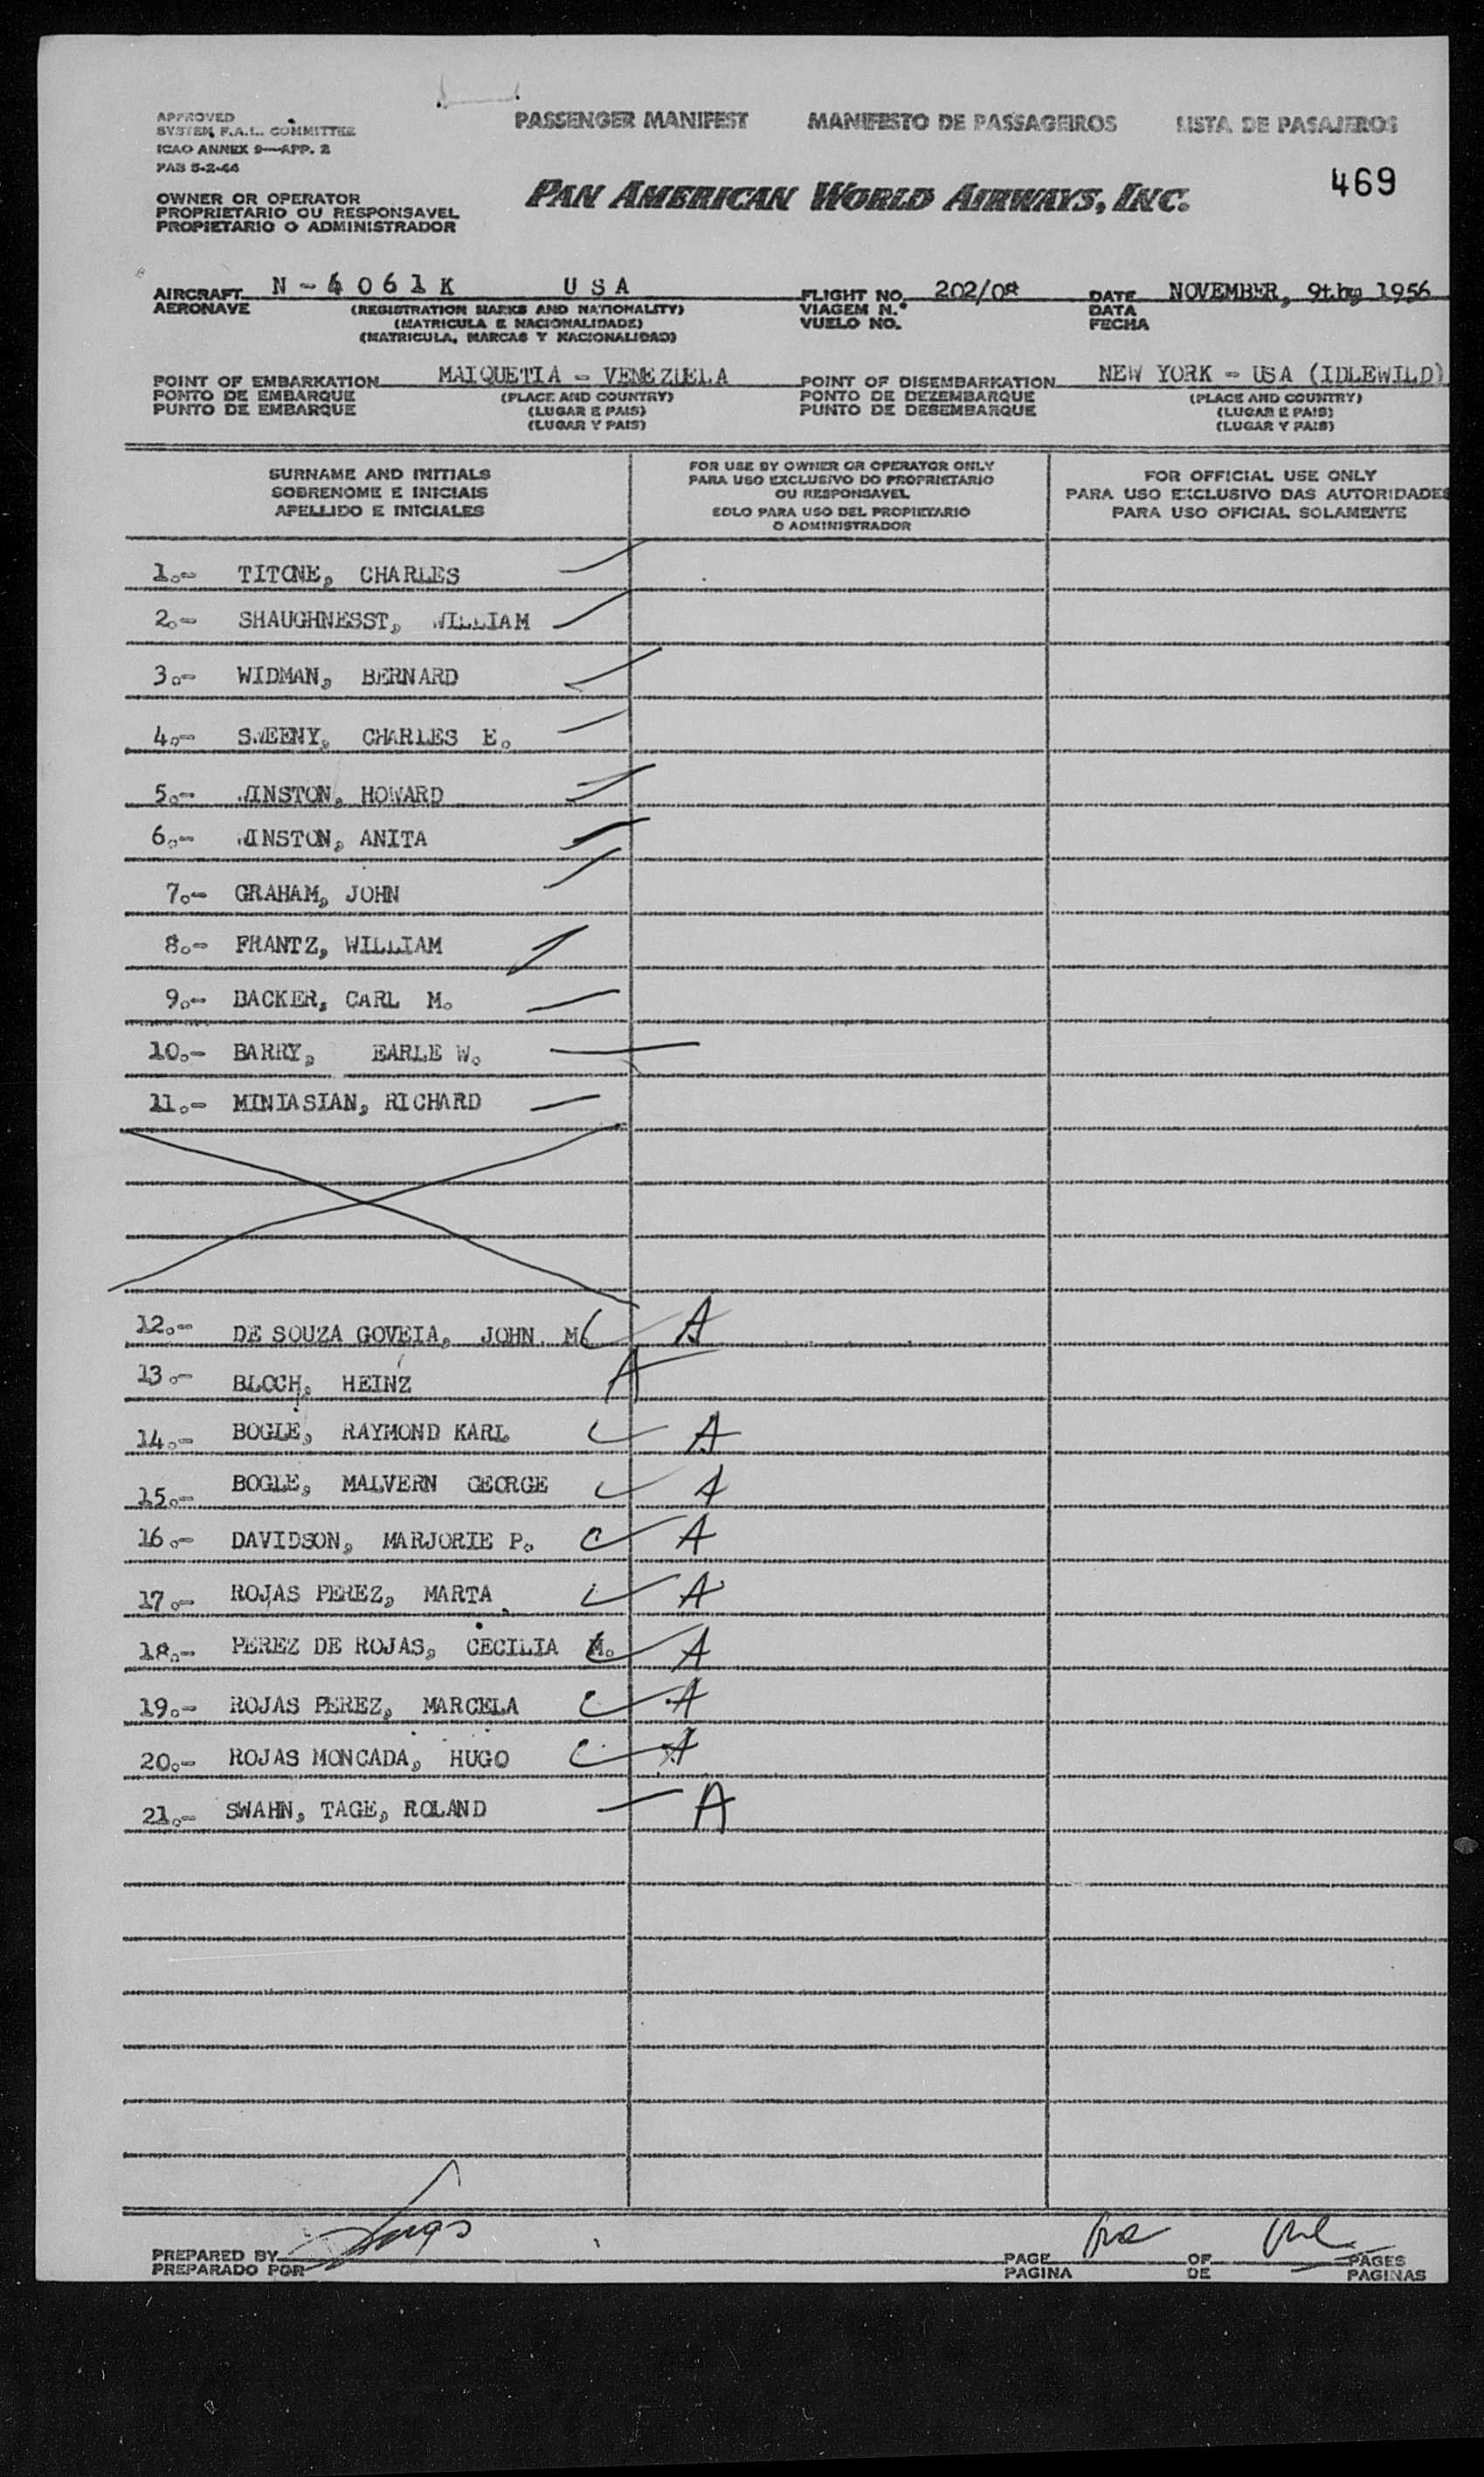 APPROVED
SYSTEM F.A.L. COMMITTEE
ICAO ANNEX 9—APP. 2
PAB 5-2-44
PASSENGER MANIFEST MANIFESTO DE PASSAGEIROS LISTA DE PASAJEROS
469
OWNER OR OPERATOR
PROPRIETARIO OU RESPONSAVEL
PROPIETARIO O ADMINISTRADOR
PAN AMERICAN WORLD AIRWAYS, INC.
AIRCRAFT N - 4 0 6 1 K U S A FLIGHT NO. 202/08 DATE NOVEMBER, 9th, 1956
AERONAVE (REGISTRATION MARKS AND NATIONALITY) VIAGEM N.° DATA
(MATRICULA E NACIONALIDADE) VUELO NO. FECHA
(MATRICULA, MARCAS Y NACIONALIDAD)
POINT OF EMBARKATION MAIQUETIA - VENEZUELA POINT OF DISEMBARKATION NEW YORK - USA (IDLEWILD)
PONTO DE EMBARQUE (PLACE AND COUNTRY) PONTO DE DEZEMBARQUE (PLACE AND COUNTRY)
PUNTO DE EMBARQUE (LUGAR E PAIS) PUNTO DE DESEMBARQUE (LUGAR E PAIS)
(LUGAR Y PAIS) (LUGAR Y PAIS)
SURNAME AND INITIALS
SOBRENOME E INICIAIS
APELLIDO E INICIALES
FOR USE BY OWNER OR OPERATOR ONLY
PARA USO EXCLUSIVO DO PROPRIETARIO
OU RESPONSAVEL
SOLO PARA USO DEL PROPIETARIO
O ADMINISTRADOR
FOR OFFICIAL USE ONLY
PARA USO EXCLUSIVO DAS AUTORIDADES
PARA USO OFICIAL SOLAMENTE
1.- TITONE, CHARLES
2.- SHAUGHNESST, WILLIAM
3.- WIDMAN, BERNARD
4.- SWEENY, CHARLES E.
5.- WINSTON, HOWARD
6.- WINSTON, ANITA
7.- GRAHAM, JOHN
8.- FRANTZ, WILLIAM
9.- BACKER, CARL M.
10.- BARRY, EARLE W.
11.- MINIASIAN, RICHARD
12.- DE SOUZA GOVEIA, JOHN. M. A
13.- BLOCH, HEINZ A
14.- BOGLE, RAYMOND KARL A
15.- BOGLE, MALVERN GEORGE A
16.- DAVIDSON, MARJORIE P. A
17.- ROJAS PEREZ, MARTA A
18.- PEREZ DE ROJAS, CECILIA M. A
19.- ROJAS PEREZ, MARCELA A
20.- ROJAS MONCADA, HUGO A
21.- SWAHN, TAGE, ROLAND A
PREPARED BY PAGE OF PAGES
PREPARADO POR PAGINA DE PAGINAS